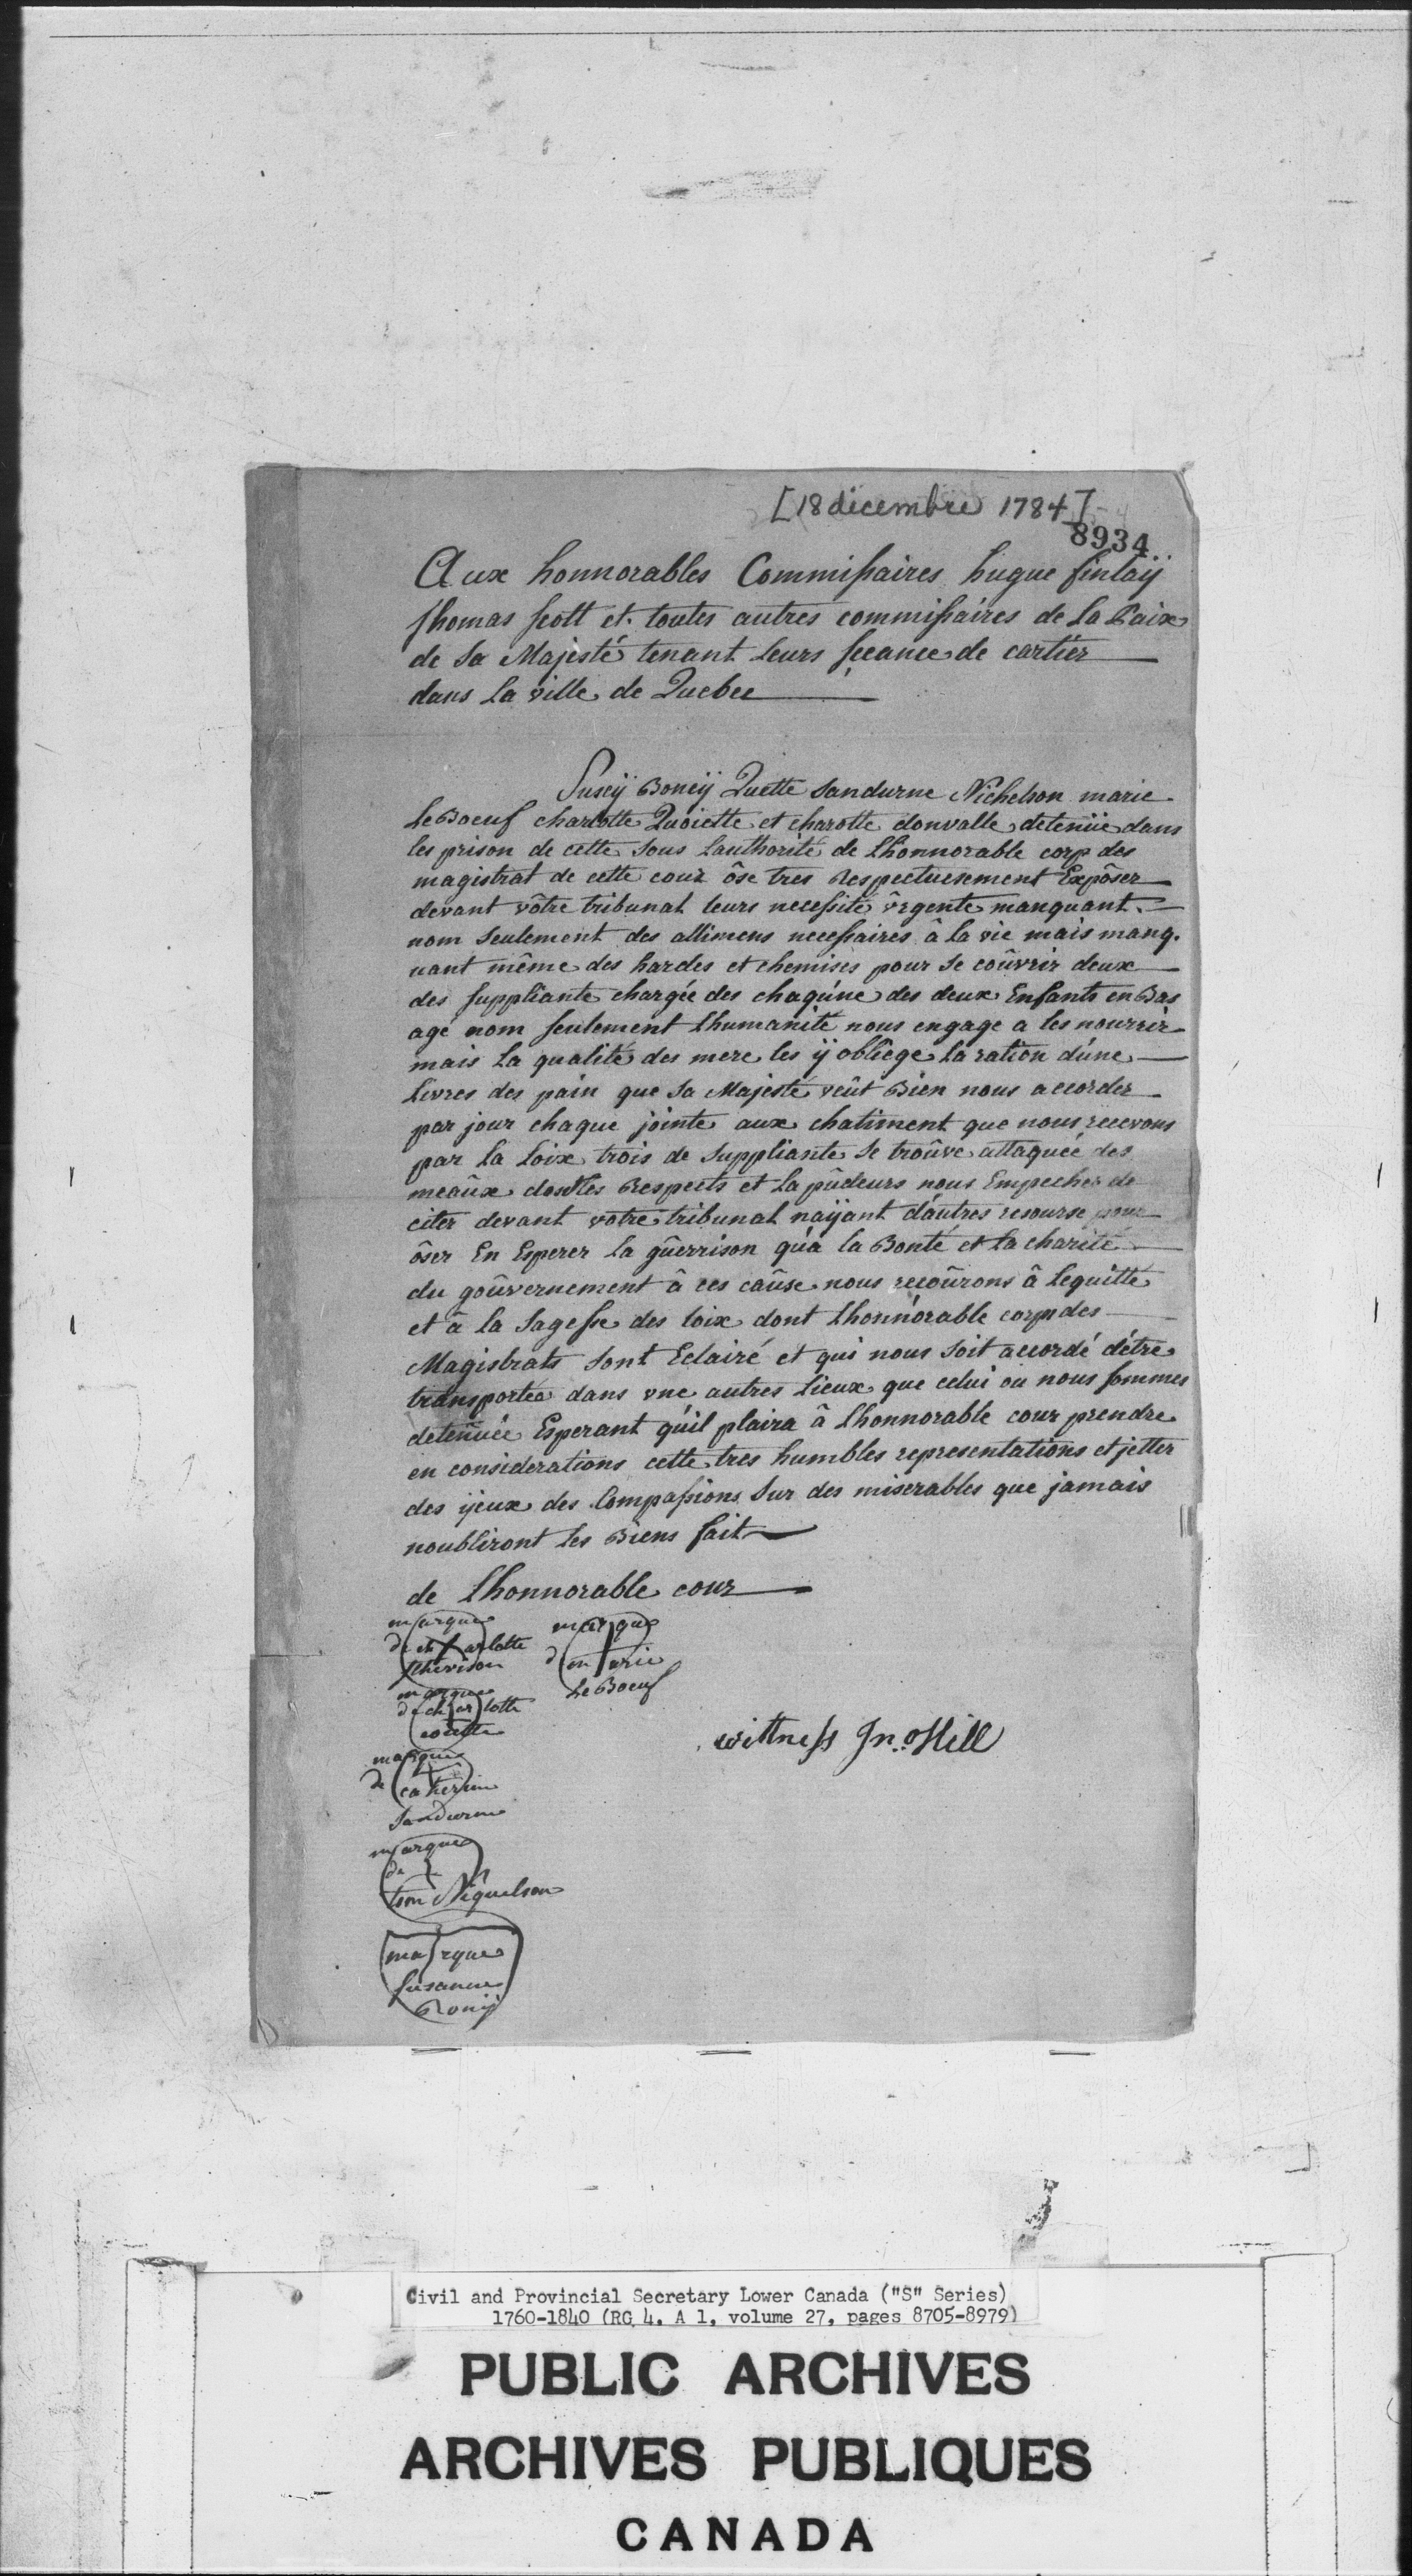 [18 décembre 1784]
8934
Aux honnorables Commissaires hugue finlaÿ
thomas scott et toutes autres commissaires de La Paix
de Sa Majesté tenant Leurs sceance de cartier
dans La ville de Quebec
Suseÿ Boneÿ Quette Sandurne Nichelson marie
LeBoeuf charlotte Quoiette et charotte donvalle detenüe dans
les prison de cette Sous Lauthorité de Lhonnorable corp des
magistrat de cette cour ôse tres Respectuesement Expôser
devant vôtre tribunal leurs necessité ûrgente manquant
nom Seulement des allimens necessaires â la vie mais manq.
uant même des hardes et chemises pour Se coûvrir deux
des suppliante chargée des chaqúne des deux Enfants en Bas
agé nom seulement Lhumanité nous engage a les nourrir
mais La qualité des mere les ÿ oblige La ration dúne
Livres des pain que Sa Majesté veût Bien nous accorder
par jour chaque jointe aux chatiment que nous recevons
par La Loix trois de Suppliante Se trouve attaqueé des
meaûx dont les Respects et La pûdeurs nous Empeches de
citer devant votre tribunal naÿant dáutres resourse pour
ôser En Esperer La gûerrison qúà la Bonté et La charité
du goûvernement â ces caûse nous recoûrons â Lequitté
et â la Sagesse des loix dont Lhonnórable corps des
Magistrats Sont Eclairé et qui nous Soit accordé détre
transportéa dans vne autres Lieux que celui ou nous sommes
detenuée Esperant qúil plaira â Lhonnorable cour prendre
en considerations cette tres humbles representations et jetter
des ijeux des Compassions Sur des miserables que jamais
noubliront Les Biens fait
de Lhonnorable cour
marque
de charlotte
marque
de marie
Le Boeuf
marque
de charlotte
marque
de catherine
Sandurne
marque
de
Niquelson
marque
Susanne
Boneÿ
wittness Jno. Hill
Civil and Provincial Secretary Lower Canada ("S" Series)
1760-1840 (RG 4, A 1, volume 27, pages 8705-8979)
PUBLIC ARCHIVES
ARCHIVES PUBLIQUES
CANADA